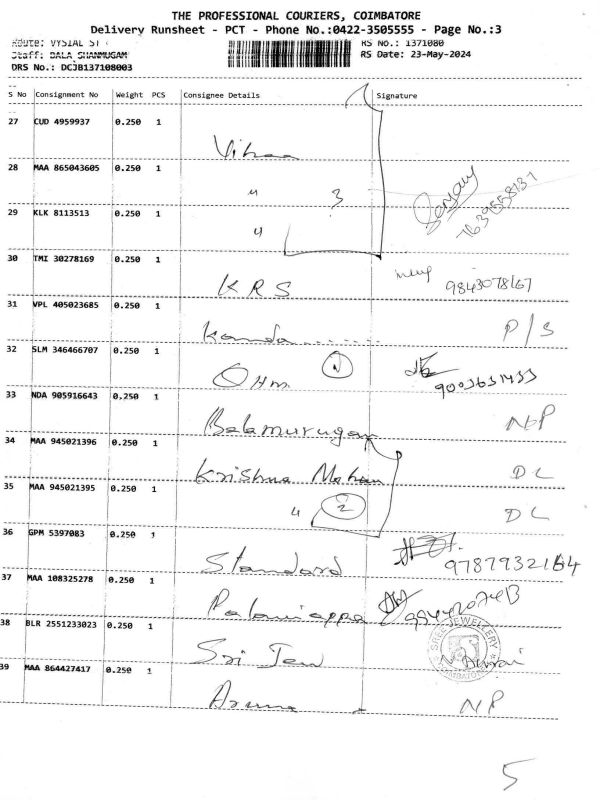 THE PROFESSIONAL COURIERS, COIMBATORE
Delivery Runsheet - PCT - Phone No.:0422-3505555 - Page No.:3
Route: VYSIAL ST RS No.: 1371080
Staff: BALA SHANMUGAM RS Date: 23-May-2024
DRS No.: DCJB137108003
S No Consignment No Weight PCS Consignee Details Signature
27 CUD 4959937 0.250 1
28 MAA 865043605 0.250 1 " 3
29 KLK 8113513 0.250 1 "
30 TMI 30278169 0.250 1 KRS 9843078167
31 VPL 405023685 0.250 1 Kanda P/S
32 SLM 346466707 0.250 1 Ohm
33 NDA 905916643 0.250 1 Balamurugan
34 MAA 945021396 0.250 1 Krishna Mohan DL
35 MAA 945021395 0.250 1 " 2 DL
36 GPM 5397083 0.250 1 Standard
37 MAA 108325278 0.250 1 Palaniappa
38 BLR 2551233023 0.250 1 Sri Jew SREE JEWELLERY COIMBATORE
39 MAA 864427417 0.250 1 Aruna NP
5